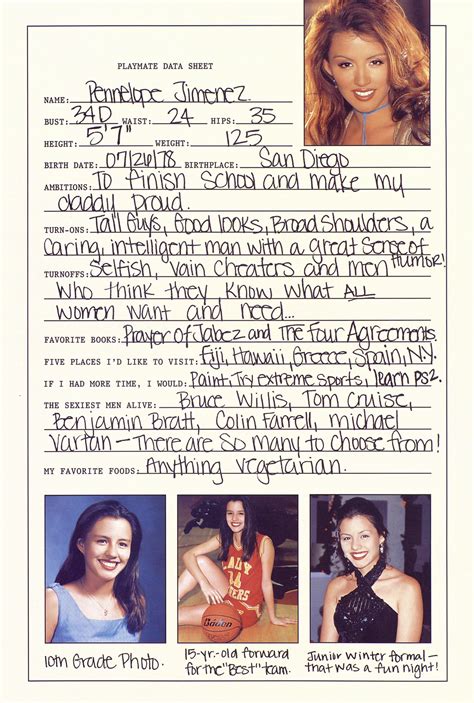 PLAYMATE DATA SHEET
NAME: Pennelope Jimenez
BUST: 34D WAIST: 24 HIPS: 35
HEIGHT: 5'7" WEIGHT: 125
BIRTH DATE: 07/26/78 BIRTHPLACE: San Diego
AMBITIONS: To finish school and make my
daddy proud.
TURN-ONS: Tall guys, Good looks, Broad Shoulders, a
Caring, intelligent man with a great Sense of Humor!
TURNOFFS: Selfish, Vain Cheaters and men
who think they know what ALL
women want and need...
FAVORITE BOOKS: Prayer Of Jabez and The Four Agreements.
FIVE PLACES I'D LIKE TO VISIT: Fiji, Hawaii, Greece, Spain, N.Y.
IF I HAD MORE TIME, I WOULD: Paint, Try extreme sports, learn PS2.
THE SEXIEST MEN ALIVE: Bruce Willis, Tom Cruise,
Benjamin Bratt, Colin Farrell, michael
Vartan - There are so many to choose from!
MY FAVORITE FOODS: Anything vegetarian.
10th Grade Photo.
15-yr.-old forward
for the "Best" team.
Junior winter formal -
that was a fun night!